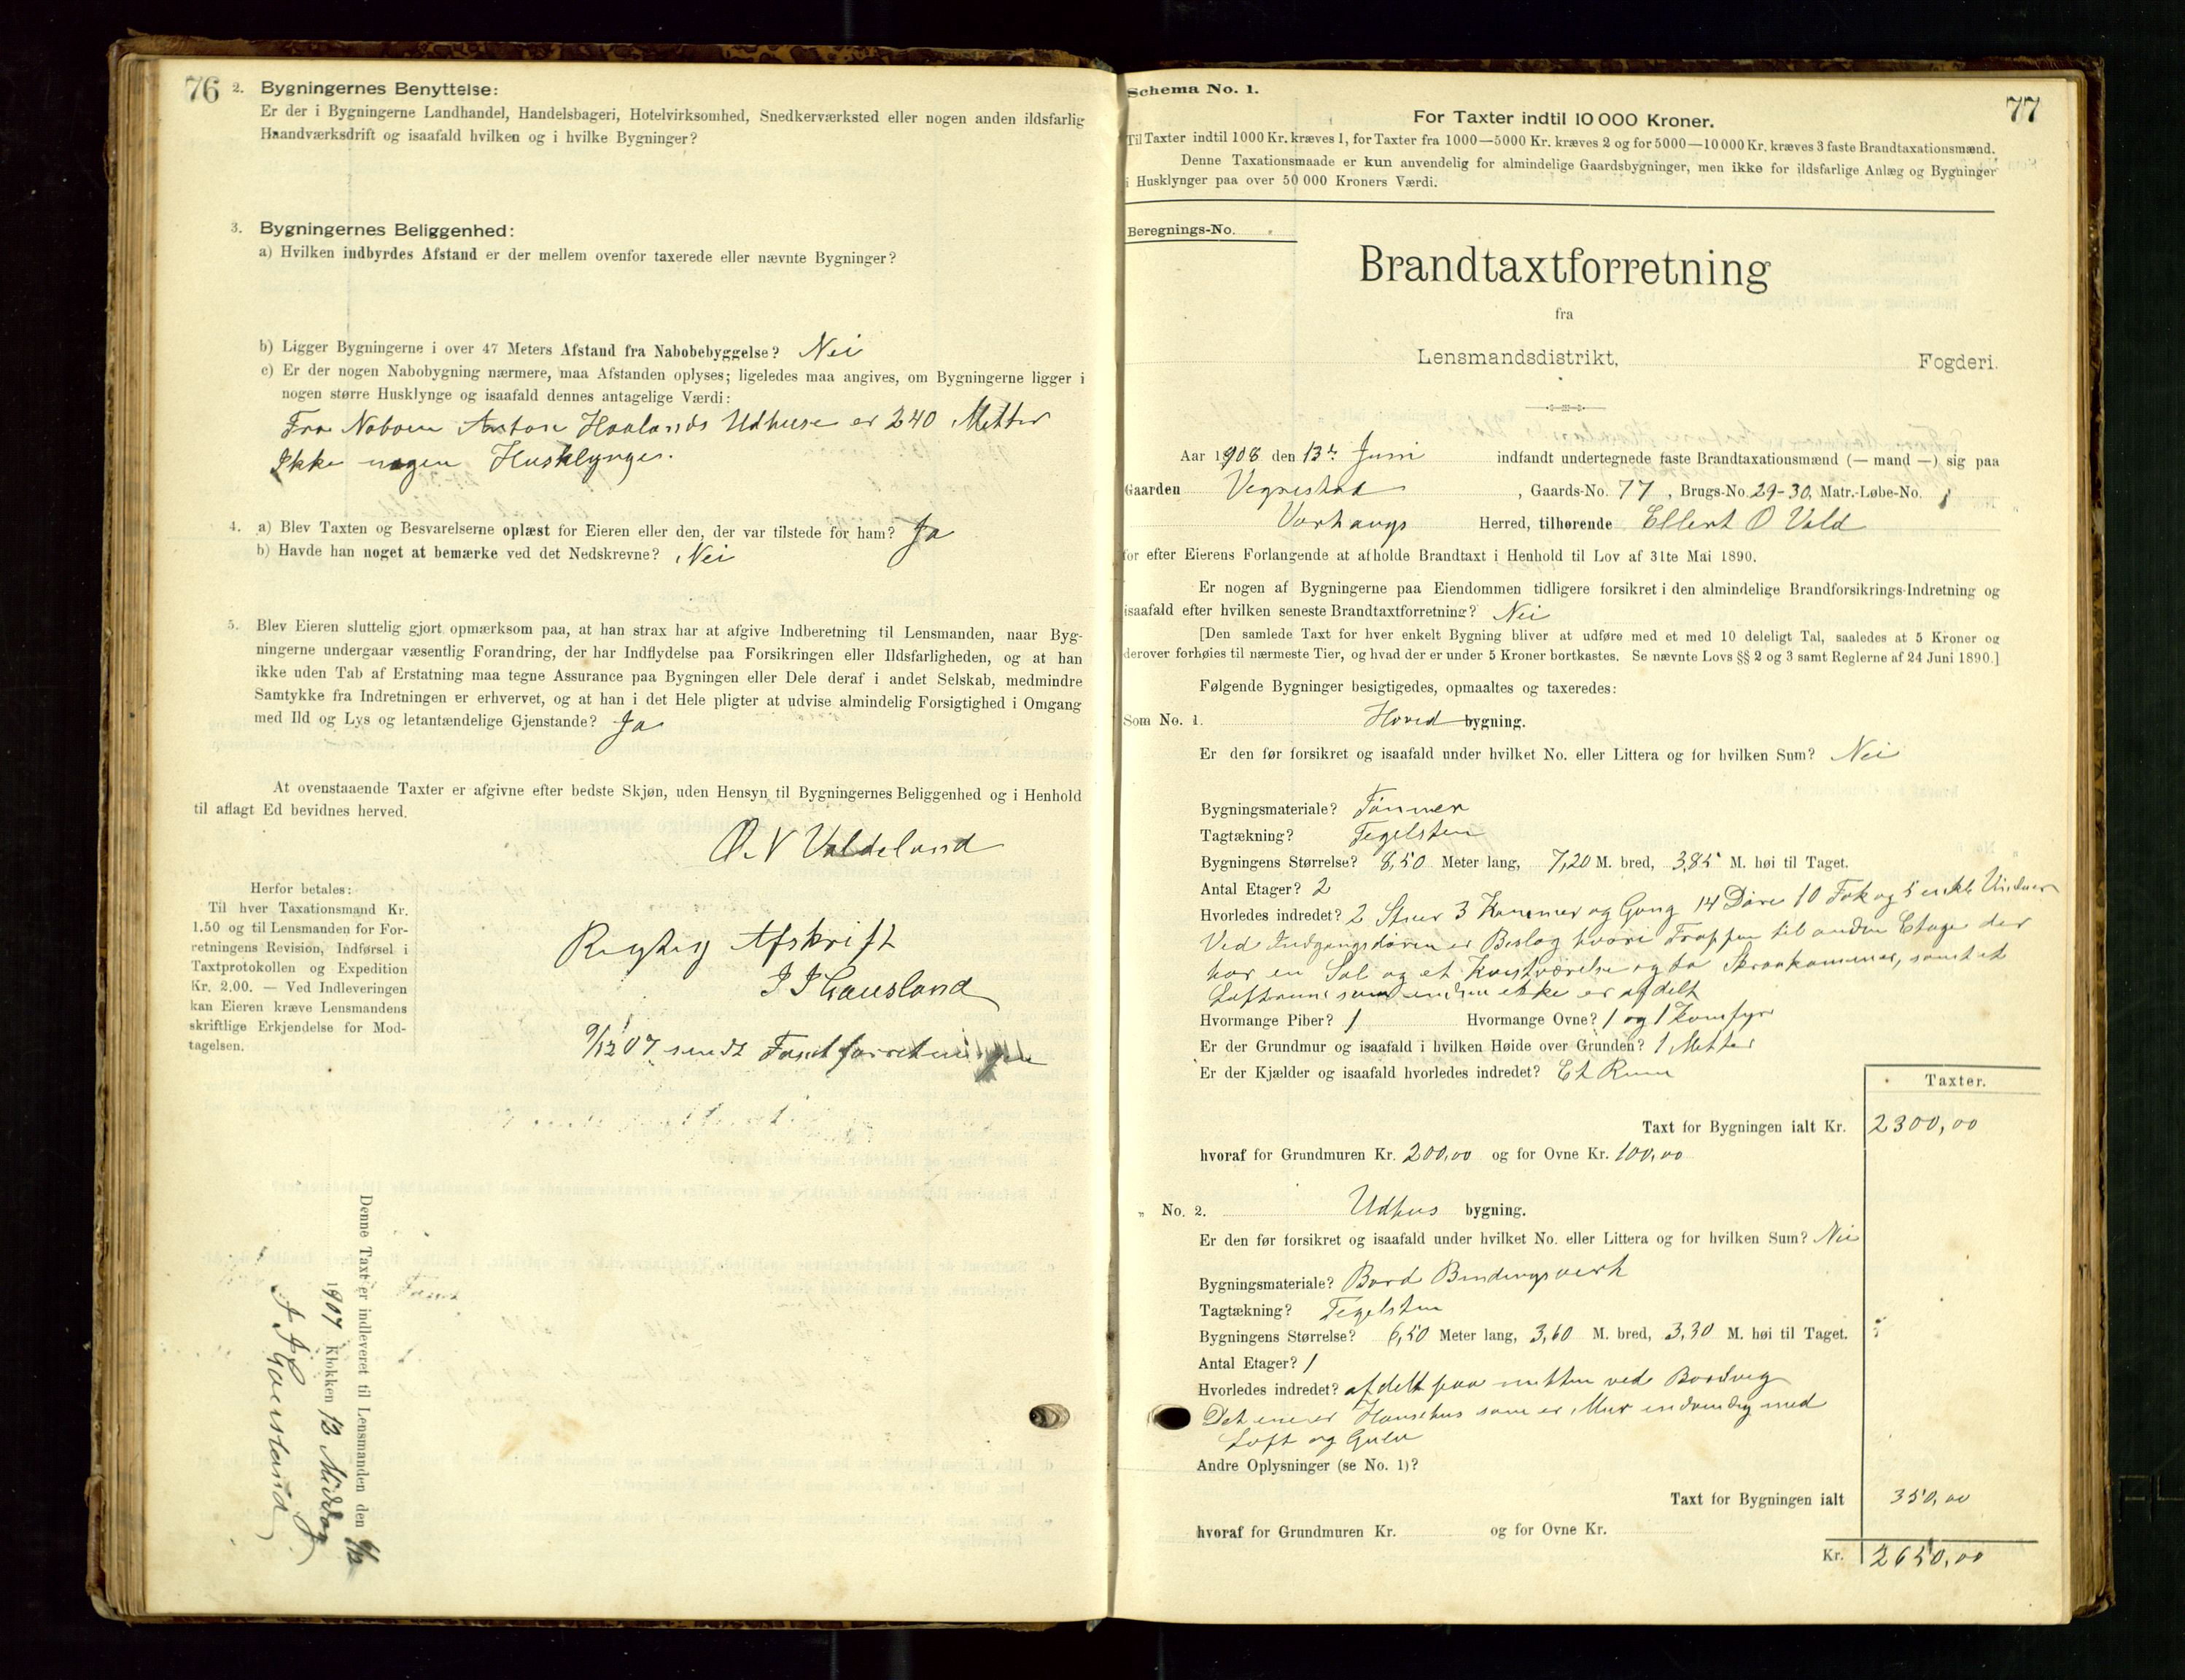 76
2. Bygningernes Benyttelse:
Er der i Bygningerne Landhandel, Handelsbageri, Hotelvirksomhed, Snedkerværksted eller nogen anden ildsfarlig
Haandværksdrift og isaafald hvilken og i hvilke Bygninger?
3. Bygningernes Beliggenhed:
a) Hvilken indbyrdes Afstand er der mellem ovenfor taxerede eller nævnte Bygninger?
b) Ligger Bygningerne i over 47 Meters Afstand fra Nabobebyggelse? Nei
c) Er der nogen Nabobygning nærmere, maa Afstanden oplyses; ligeledes maa angives, om Bygningerne ligger i
nogen større Husklynge og isaafald dennes antagelige Værdi:
Fra Naboen Anton Haalands Udhuse er 240 Metter
Ikke nogen Husklynge.
4. a) Blev Taxten og Besvarelserne oplæst for Eieren eller den, der var tilstede for ham? Ja
b) Havde han noget at bemærke ved det Nedskrevne? Nei
5. Blev Eieren sluttelig gjort opmærksom paa, at han strax har at afgive Indberetning til Lensmanden, naar Byg-
ningerne undergaar væsentlig Forandring, der har Indflydelse paa Forsikringen eller Ildsfarligheden, og at han
ikke uden Tab af Erstatning maa tegne Assurance paa Bygningen eller Dele deraf i andet Selskab, medmindre
Samtykke fra Indretningen er erhvervet, og at han i det Hele pligter at udvise almindelig Forsigtighed i Omgang
med Ild og Lys og letantændelige Gjenstande? Ja
At ovenstaaende Taxter er afgivne efter bedste Skjøn, uden Hensyn til Bygningernes Beliggenhed og i Henhold
til aflagt Ed bevidnes herved.
O. V Valdeland
Herfor betales:
Til hver Taxationsmand Kr.
1.50 og til Lensmanden for For-
retningens Revision, Indførsel i
Taxtprotokollen og Expedition
Kr. 2.00. — Ved Indleveringen
kan Eieren kræve Lensmandens
skriftlige Erkjendelse for Mod-
tagelsen.
Rigtig Afskrift
J J Gausland
9/12 07 sendt
Denne Taxt er indleveret til Lensmanden den 9/12
1907 Klokken 12 Middag
J J Gausland
77
Schema No. 1.
For Taxter indtil 10 000 Kroner.
Til Taxter indtil 1000 Kr. kræves 1, for Taxter fra 1000—5000 Kr. kræves 2 og for 5000—10 000 Kr. kræves 3 faste Brandtaxationsmænd.
Denne Taxationsmaade er kun anvendelig for almindelige Gaardsbygninger, men ikke for ildsfarlige Anlæg og Bygninger
i Husklynger paa over 50 000 Kroners Værdi.
Beregnings-No.
Brandtaxtforretning
fra
Lensmandsdistrikt, Fogderi.
Aar 1908 den 13de Juni indfandt undertegnede faste Brandtaxationsmænd (— mand —) sig paa
Gaarden Vegrestad, Gaards-No. 77, Brugs-No. 29-30, Matr.-Løbe-No.
Varhaugs Herred, tilhørende Ellert O Vald
for efter Eierens Forlangende at afholde Brandtaxt i Henhold til Lov af 31te Mai 1890.
Er nogen af Bygningerne paa Eiendommen tidligere forsikret i den almindelige Brandforsikrings-Indretning og
isaafald efter hvilken seneste Brandtaxtforretning? Nei
[Den samlede Taxt for hver enkelt Bygning bliver at udføre med et med 10 deleligt Tal, saaledes at 5 Kroner og
derover forhøies til nærmeste Tier, og hvad der er under 5 Kroner bortkastes. Se nævnte Lovs §§ 2 og 3 samt Reglerne af 24 Juni 1890.]
Følgende Bygninger besigtigedes, opmaaltes og taxeredes:
Som No. 1. Hovedbygning.
Er den før forsikret og isaafald under hvilket No. eller Littera og for hvilken Sum? Nei
Bygningsmateriale? Tømmer
Tagtækning? Tegelsten
Bygningens Størrelse? 8,50 Meter lang, 7,20 M. bred, 3,85 M. høi til Taget.
Antal Etager? 2
Hvorledes indredet? 2 Stuer 3 Kammer og Gang 14 Døre 10 Fak og 5 enkle Vinduer
Ved Indgangsdøren er Beslag hvori Trappen til anden Etage der
har en Sal og et Kvistværelse og to Skraakammer, samt et
Loftsrum som endnu ikke er afdelt
Hvormange Piber? 1 Hvormange Ovne? 1 og 1 Komfyr
Er der Grundmur og isaafald i hvilken Høide over Grunden? 1 Metter
Er der Kjælder og isaafald hvorledes indredet? Et Rum
Taxter.
Taxt for Bygningen ialt Kr. 2300,00
hvoraf for Grundmuren Kr. 200,00 og for Ovne Kr. 100,00
„ No. 2. Udhus bygning.
Er den før forsikret og isaafald under hvilket No. eller Littera og for hvilken Sum? Nei
Bygningsmateriale? Bord Bindingsverk
Tagtækning? Tegelsten
Bygningens Størrelse? 6,50 Meter lang, 3,60 M. bred, 3,30 M. høi til Taget.
Antal Etager? 1
Hvorledes indredet? afdelt paa mitten ved Bordveg
Det ene er Hønsehus som er Mur indvendig med
Loft og Gulv
Andre Oplysninger (se No. 1)?
Taxt for Bygningen ialt 350,00
hvoraf for Grundmuren Kr. og for Ovne Kr.
Kr. 2650,00